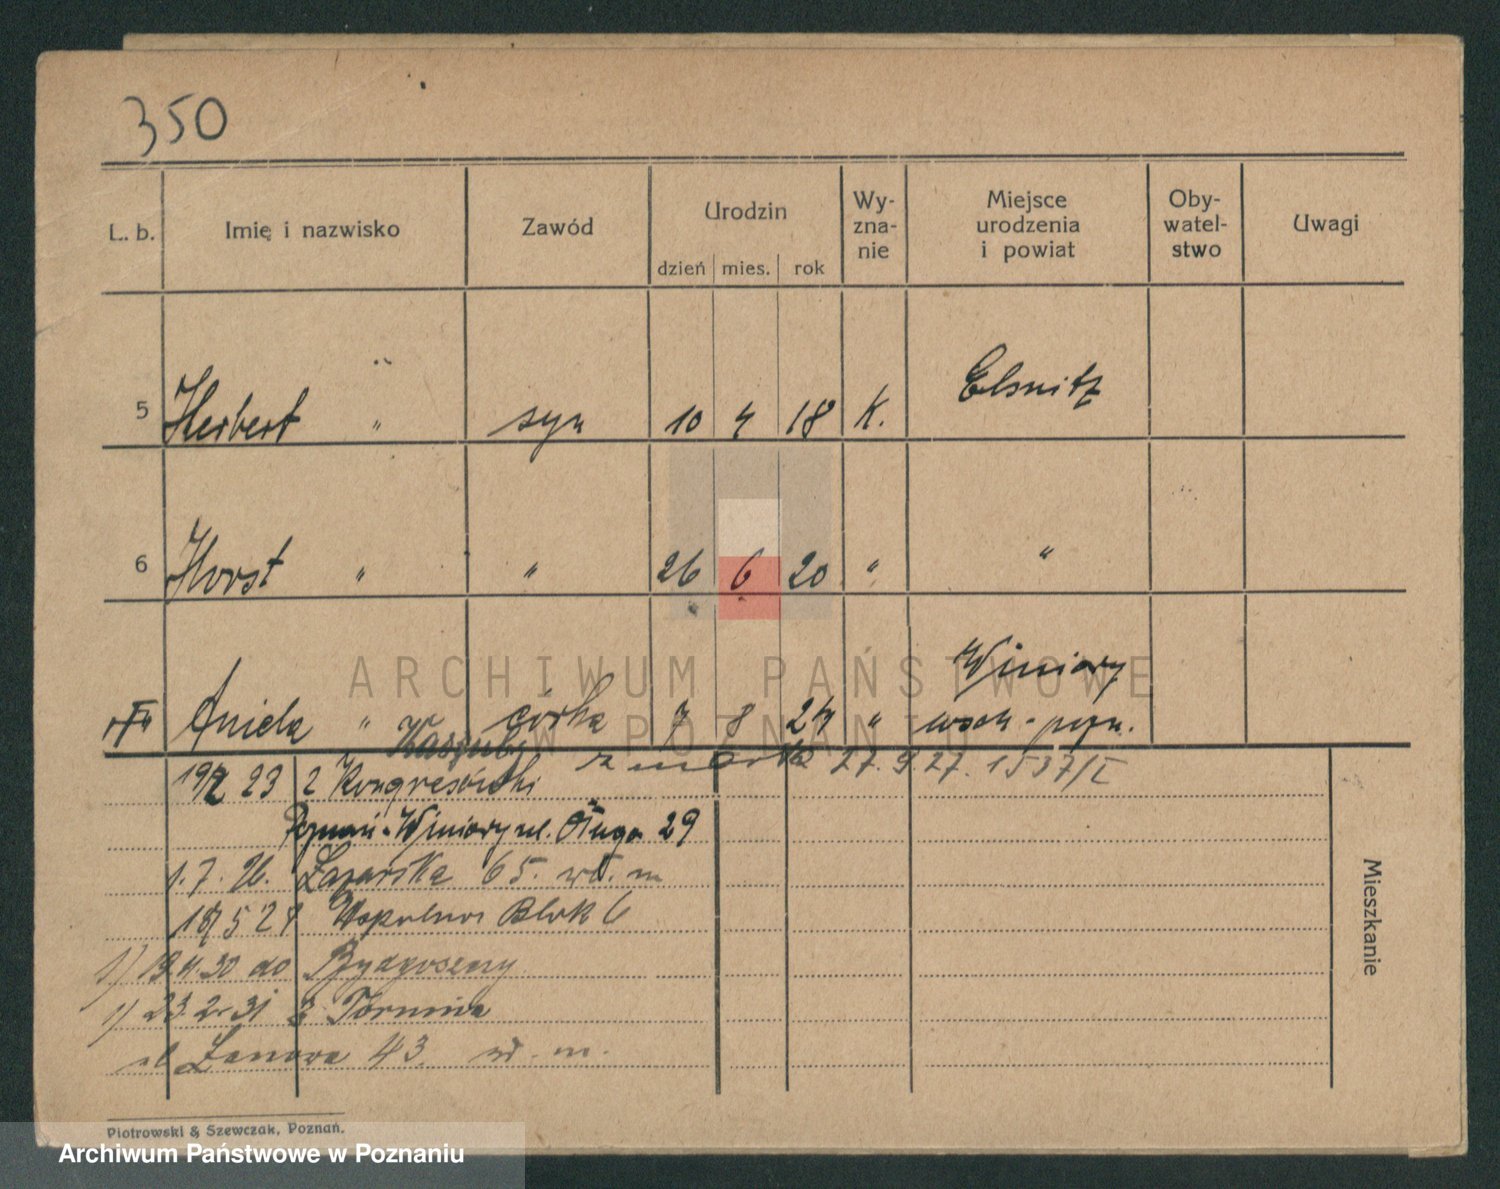 350
L. b. Imię i nazwisko Zawód Urodzin dzień mies. rok Wy-zna-nie Miejsce urodzenia i powiat Oby-watel-stwo Uwagi
Elsnitz
5 Herbert " syn 10 4 18 K.
6 Horst " " 26 6 20 " "
Winiary
Aniela " córka 7 8 27 " wsch-pozn.
Kaszuby
zmarła 27.9.27. 1537/I
23 z Kongresówki
Poznań-Winiary ul. Długa 29
1.7.26. Łazarska 65. wł. m
5 Blok 6
1) 19.4.30 do Bydgoszczy
1) 23.2.31 z Torunia
ul Łanowa 43. wł. m.
Mieszkanie
Piotrowski & Szewczak, Poznań.
ARCHIWUM PAŃSTWOWE
W POZNANIU
Archiwum Państwowe w Poznaniu